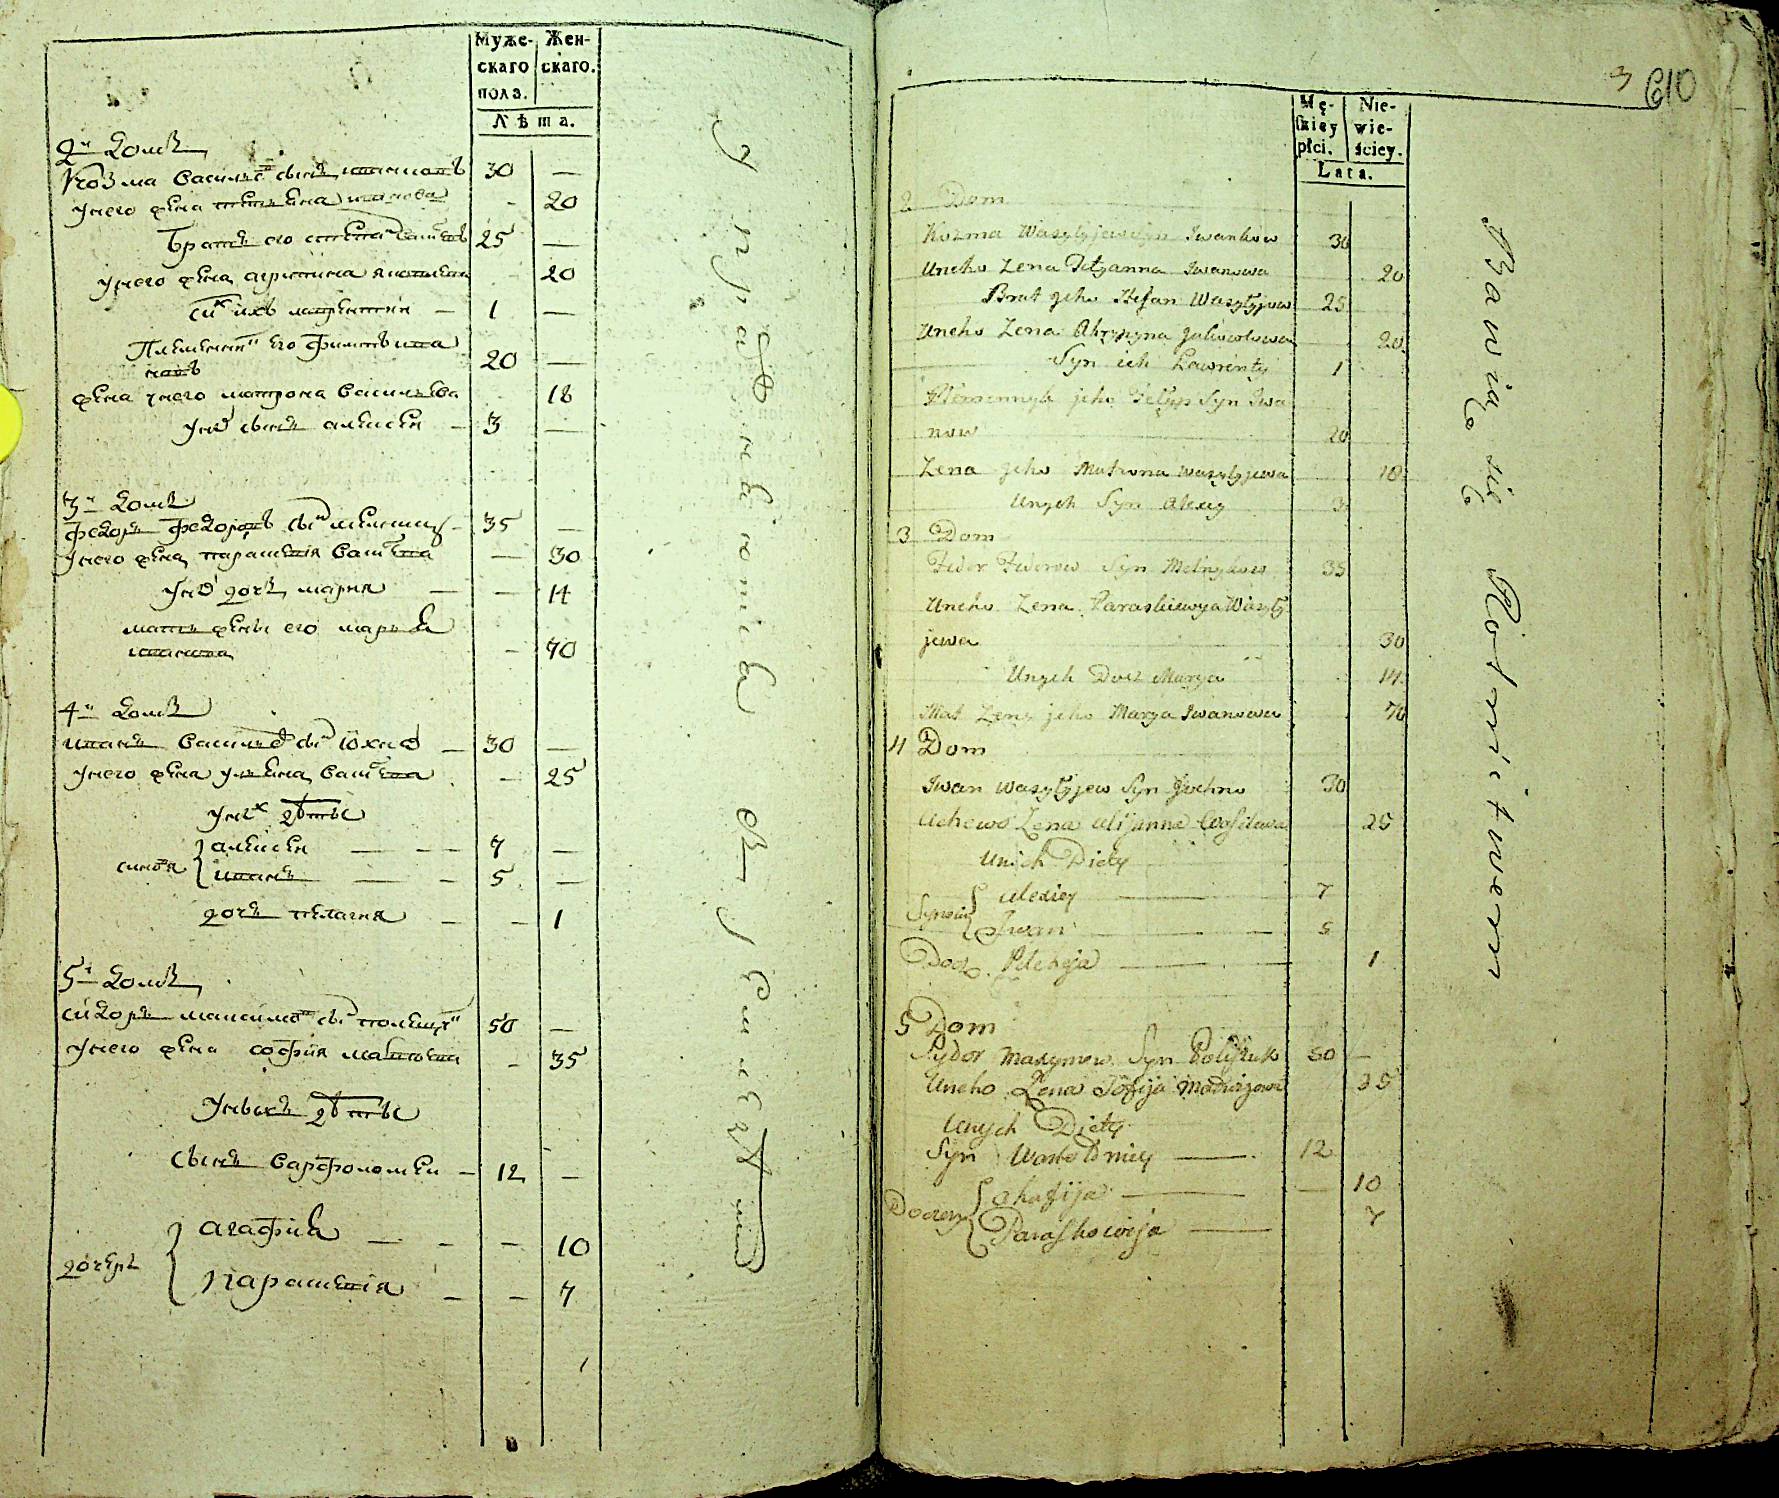 Муже- Жен-
скаго скаго.
полэ.
Лѣта.
2й домъ
Козма Васильевъ сынъ Ивановъ 30 —
У него жена Татьяна Иванова 20
Братъ его Стефанъ Васильевъ 25 —
У него жена Агрипина 20
Сынъ ихъ Лаврентій — 1 —
Племенникъ его Филипъ Ива
новъ 20 —
жена у него Матрона Васильева 18
У них сынъ Алексей — 3 —
3й домъ
Федоръ Федоровъ сынъ 35 —
У него жена Параскевія Васильева — 30
У них дочь Мария — — 14
Мать жены его Марья
Иванова — 70
4й домъ
Иванъ Васильевъ сынъ Юхно — 30 —
У него жена Ульяна Васильева — 25
У них дѣти
Сыновя { Алексей — — — 7 —
Иванъ — — 5 —
дочь Пелагия — — 1
5й домъ
Сидоръ Максимовъ сынъ Полещукъ 50 —
У него жена София — 35
У ныхъ дѣти
Сынъ Варфоломей — 12 —
дочери { Агафия — — — 10
Параскевія — — 7
Упражняются въ земледѣлии
3 610
Mę- Nie-
skiey wie-
płci. ściey.
Lata.
2 Dom
Kozma Wasylyjew Syn Iwankow 30
Uneho Zena Tetyanna Iwanowa 20
Brat jeho Stefan Wasylyjew 25
Uneho Zena Ahrypyna 20
Syn ich Lawrenty 1
Plemennyk jeho Felyp Syn Iwa
now 20
Zena jeho Matrona Wasylyjewa 18
Unych Syn Alexey 3
3 Dom
Fedor Fedorow Syn Melnykow 35
Uneho Zena Paraskiewya Wasyly
jewa 30
Unych Docz Marya 14
Mat Zeny jeho Marya Iwanowa 70
4 Dom
Iwan Wasylyjew Syn Juchno 30
Uchewo Zena Ulijanna Wasilewa 25
Unich Diety
Synowia { Alexiey — 7
Iwan — — 5
Docz Pelekeja — — 1
5 Dom
Sydor Maxymow Syn Poliszuk 50 —
Uneho Zena Sofija 35
Unych Diety
Syn — 12
Doczery { Ahafija — — 10
Paraskowija — 7
Bawią się Rolnictwem